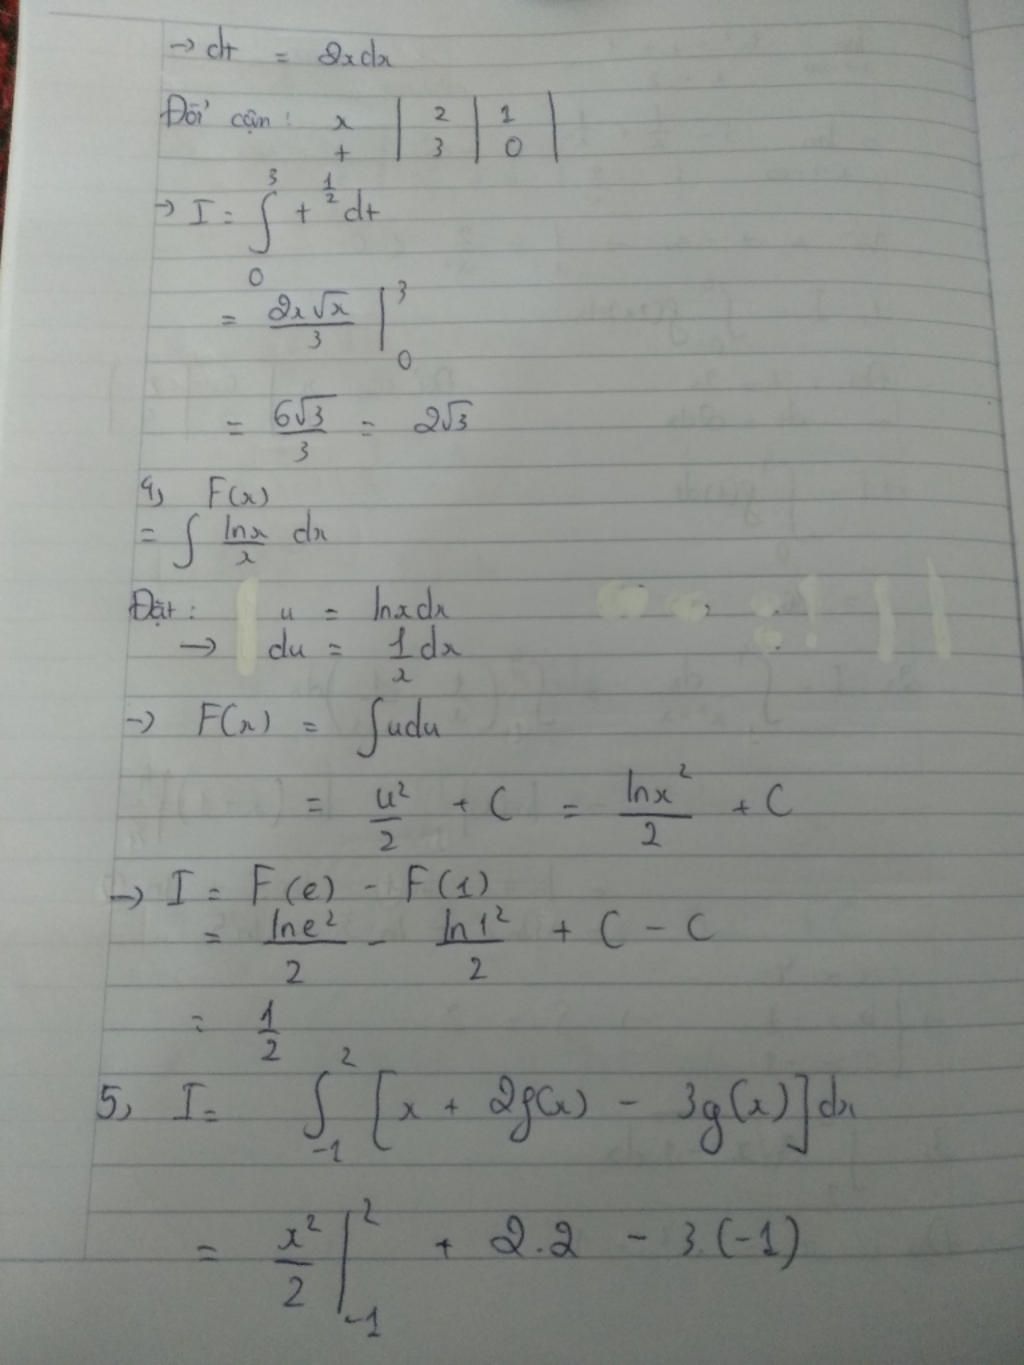 → dt = 2xdx
Đổi cận: x | 2 | 1 |
t | 3 | 0 |
→ I = ∫₀³ t^(1/2) dt
= 2x√x / 3 |₀³
= 6√3 / 3 = 2√3
4, F(x)
= ∫ lnx / x dx
Đặt: u = lnxdx
→ du = 1/x dx
→ F(x) = ∫udu
= u²/2 + C = lnx²/2 + C
→ I = F(e) - F(1)
= lne²/2 - ln1²/2 + C - C
= 1/2
5, I = ∫₋₁² [x + 2f(x) - 3g(x)]dx
= x²/2 |₋₁² + 2.2 - 3.(-1)